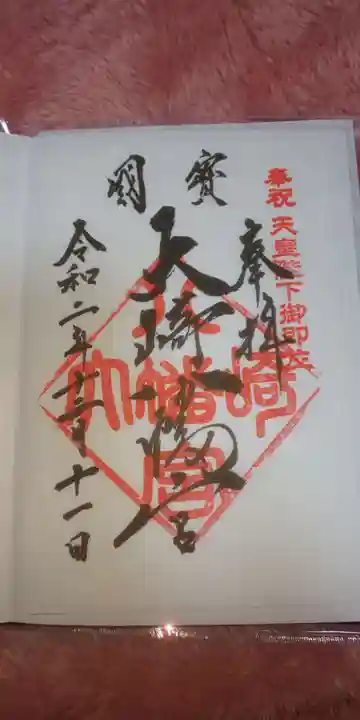 奉祝 天皇陛下御即位
奉拝
寳國
大崎八幡宮
令和二年十二月十一日
大崎八幡宮